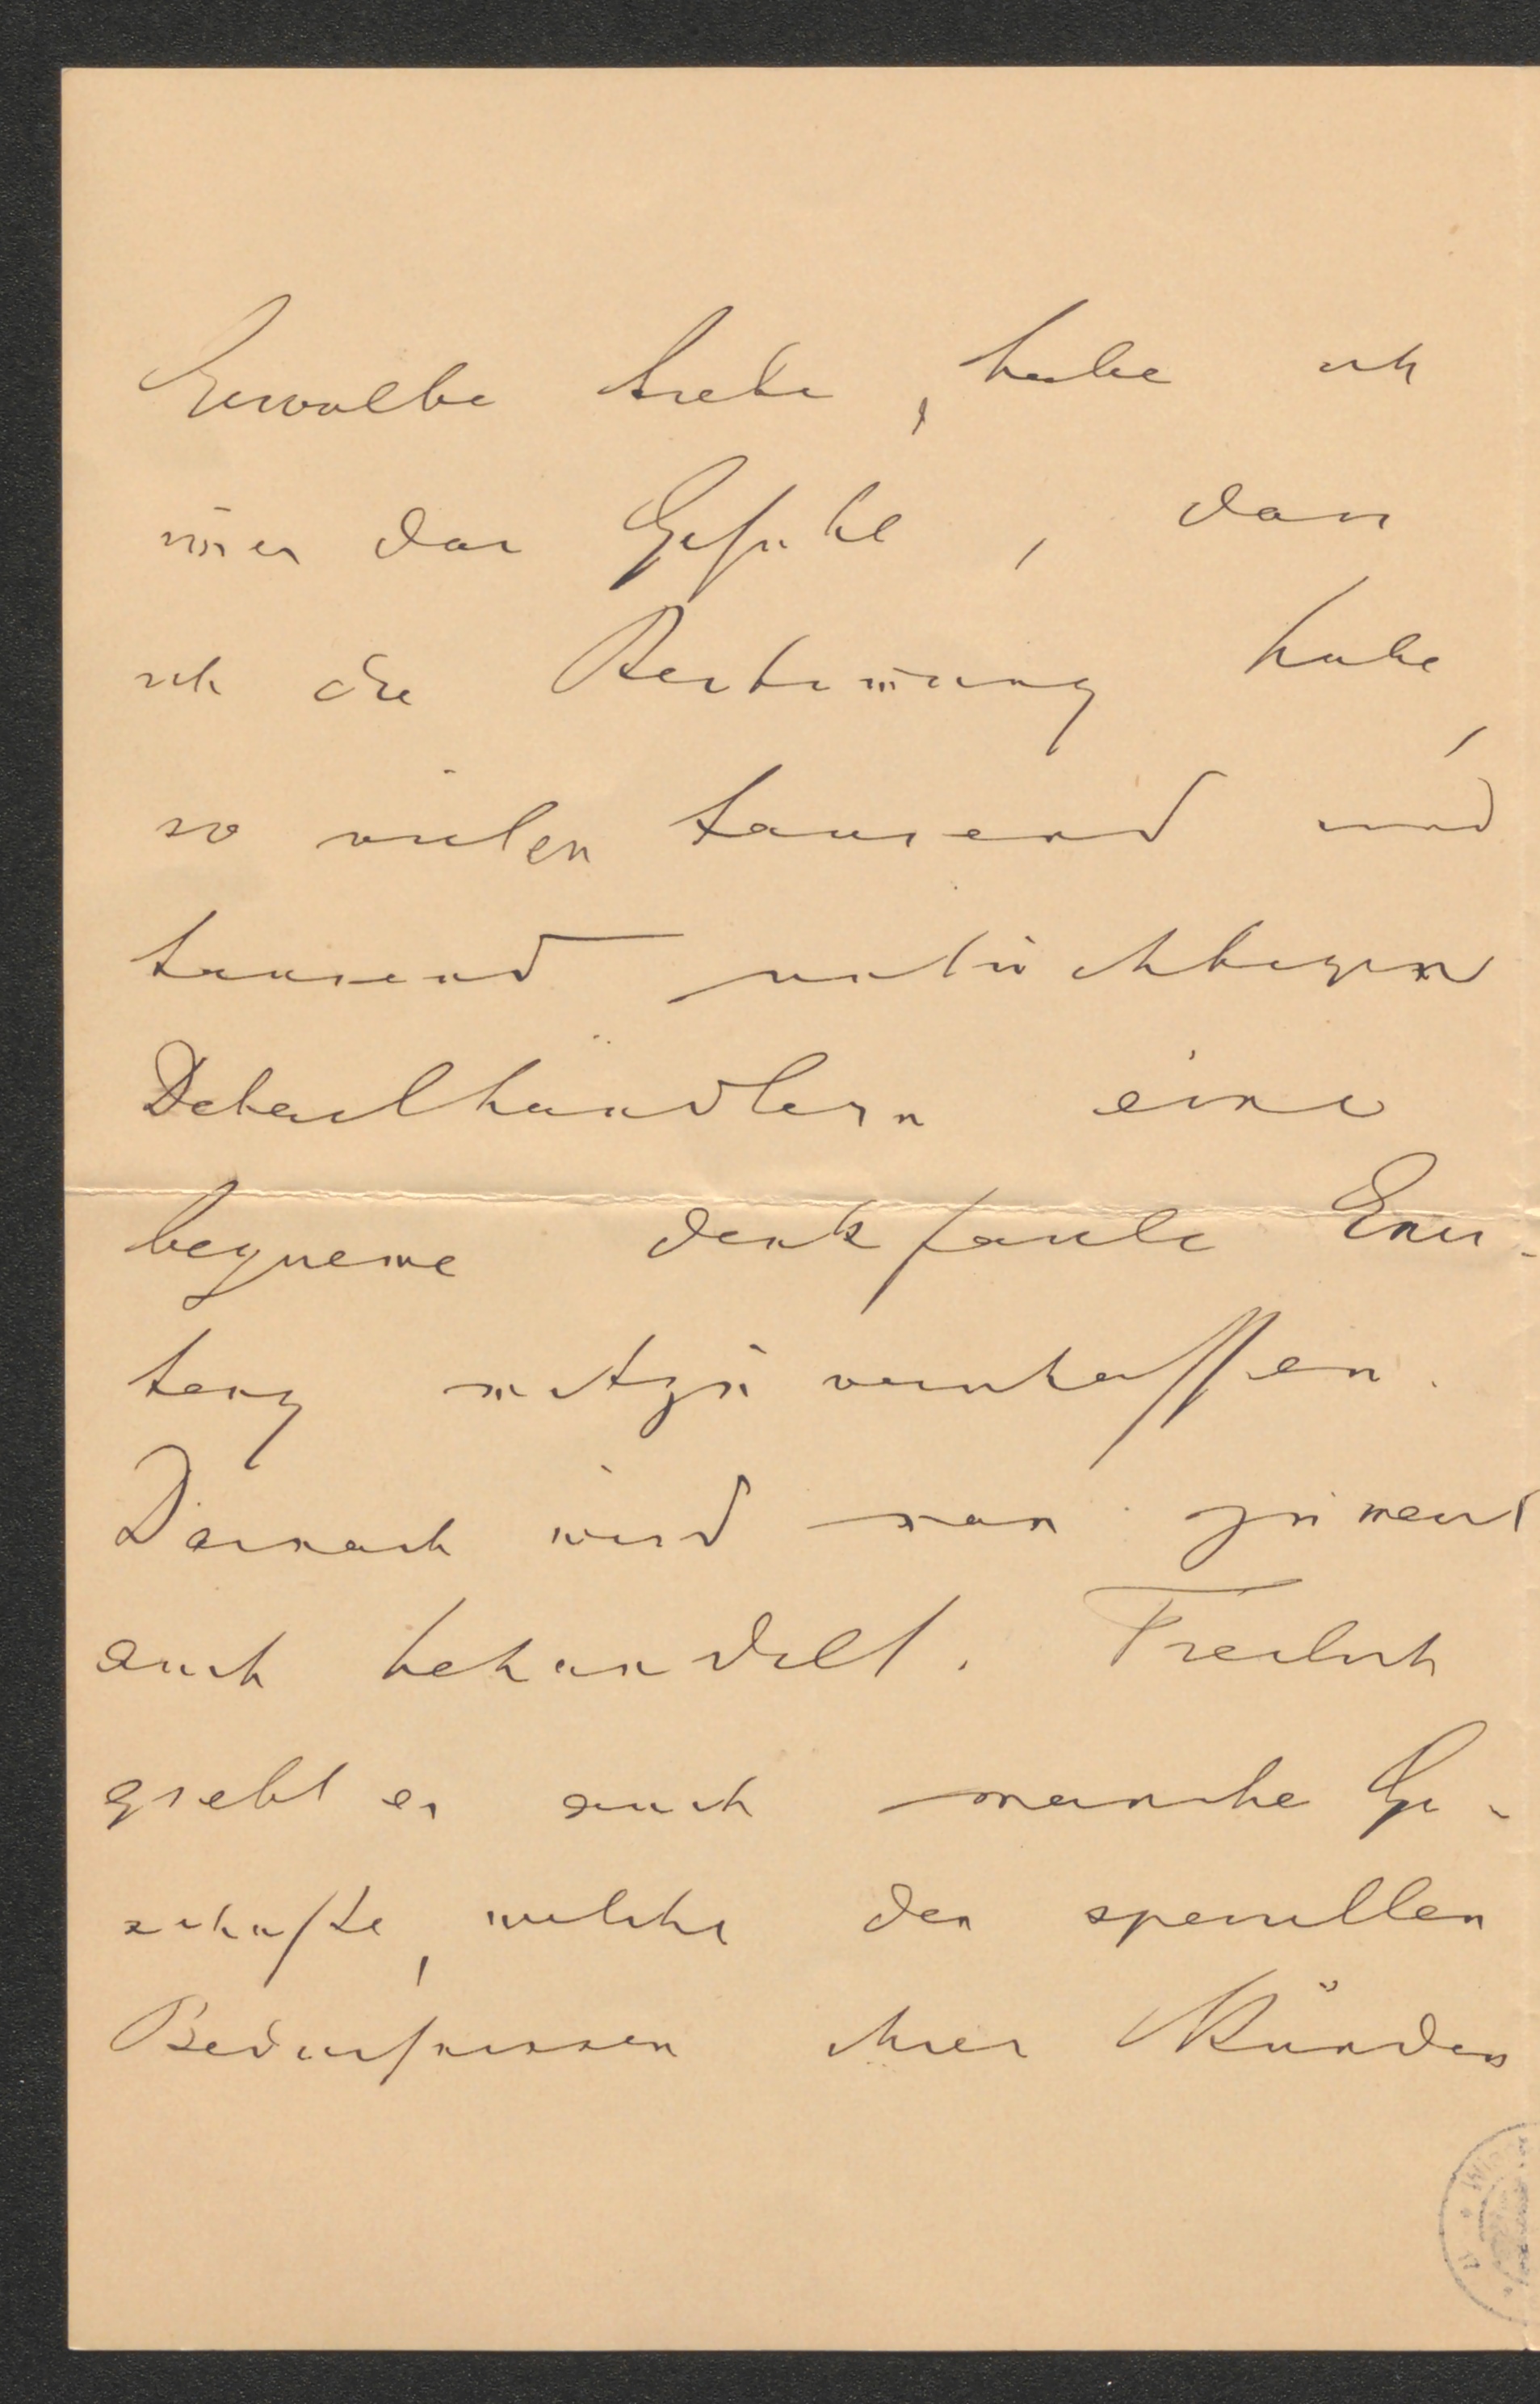 Gewölbe trete, habe ich
im̄er das Gefühl, dass
ich die Bestim̄ung habe,
so vielen tausend und
tausend untüchtigen
Detailhändlern eine
bequeme denkfaule Exis-
tenz mitzuverschaffen.
Darnach wird man zumeist
auch behandelt. Freilich
giebt es auch manche Ge-
schäfte, welche den speciellen
Bedürfnissen ihrer Kunden